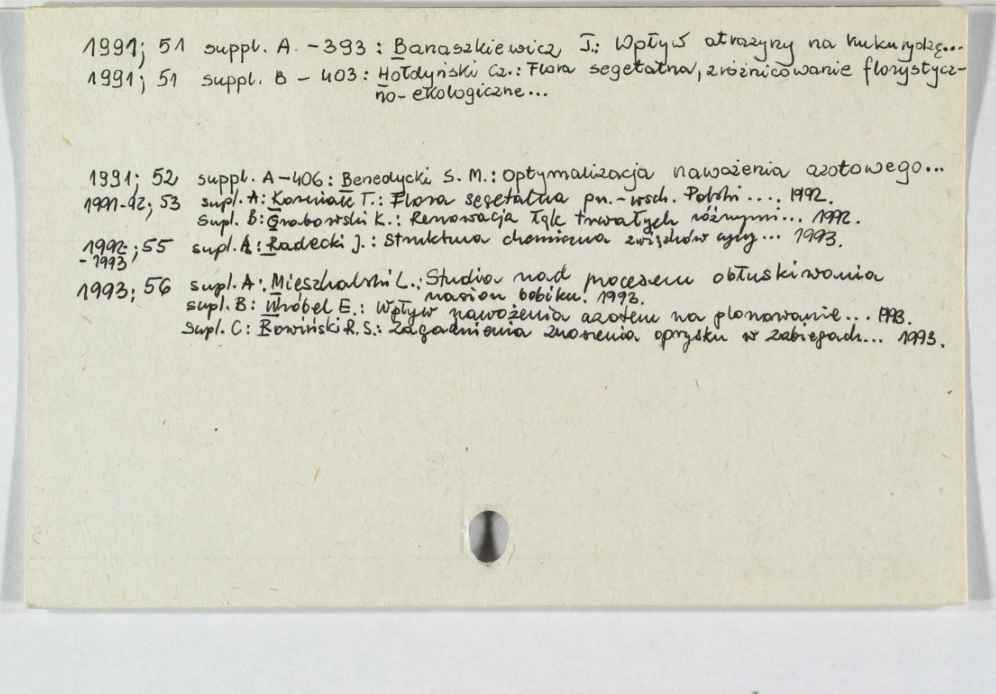 1991; 51 suppl. A. - 393 : Banaszkiewicz T.: Wpływ atrazyny na kukurydzę...
1991; 51 suppl. B - 403 : Hołdyński Cz.: Flora segetalna, zróżnicowanie florystycz-
no-ekologiczne...
1991; 52 suppl. A-406 : Benedycki S. M.: Optymalizacja nawożenia azotowego...
1991-92; 53 supl. A: Korniak T.: Flora segetalna pn.-wsch. Polski .... 1992.
supl. B: Grabowski K.: Renowacja łąk trwałych różnymi... 1992.
1992-1993; 55 supl. A: Radecki J.: Struktura chemiczna związków czyny... 1993.
1993; 56 supl. A: Mieszkalski L.: Studia nad procesem obłuskiwania
nasion bobiku. 1993.
supl. B: Wróbel E.: Wpływ nawożenia azotem na plonowanie... 1993.
supl. C: Rowiński R.S.: Zagadnienia znoszenia oprysku w zabiegach... 1993.